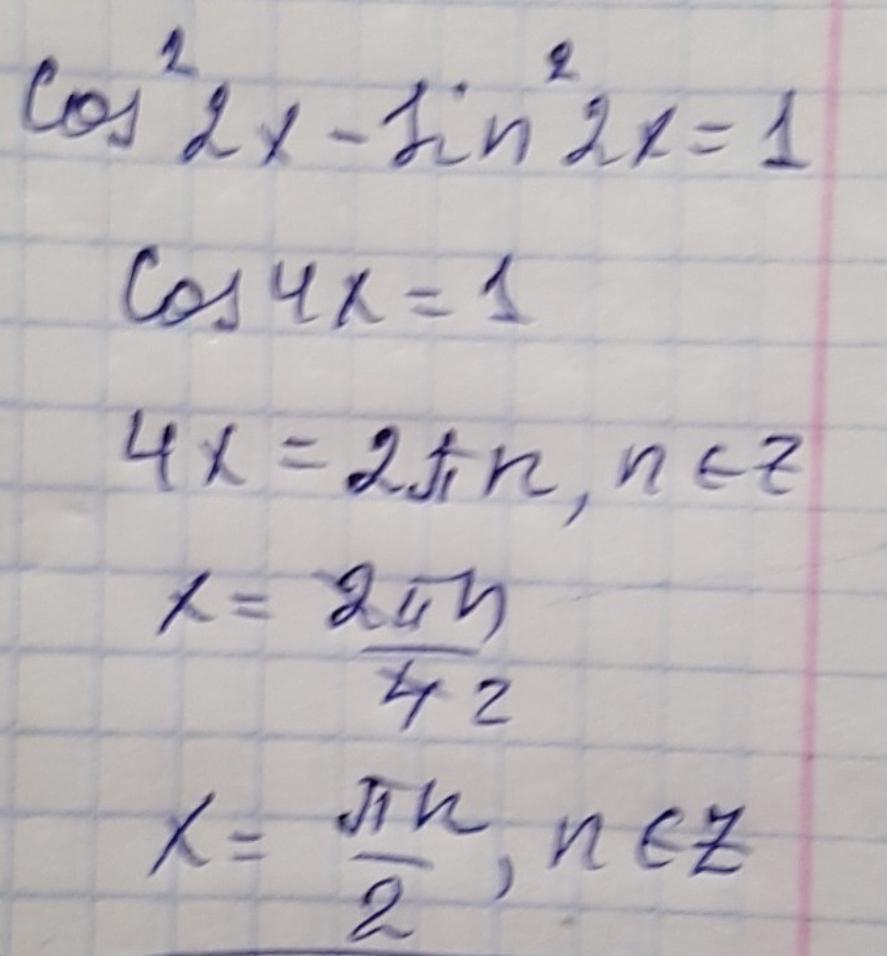 cos²2x - sin²2x = 1
cos4x = 1
4x = 2πn, n ∈ Z
x = 2πn/4 2
x = πn/2, n ∈ Z